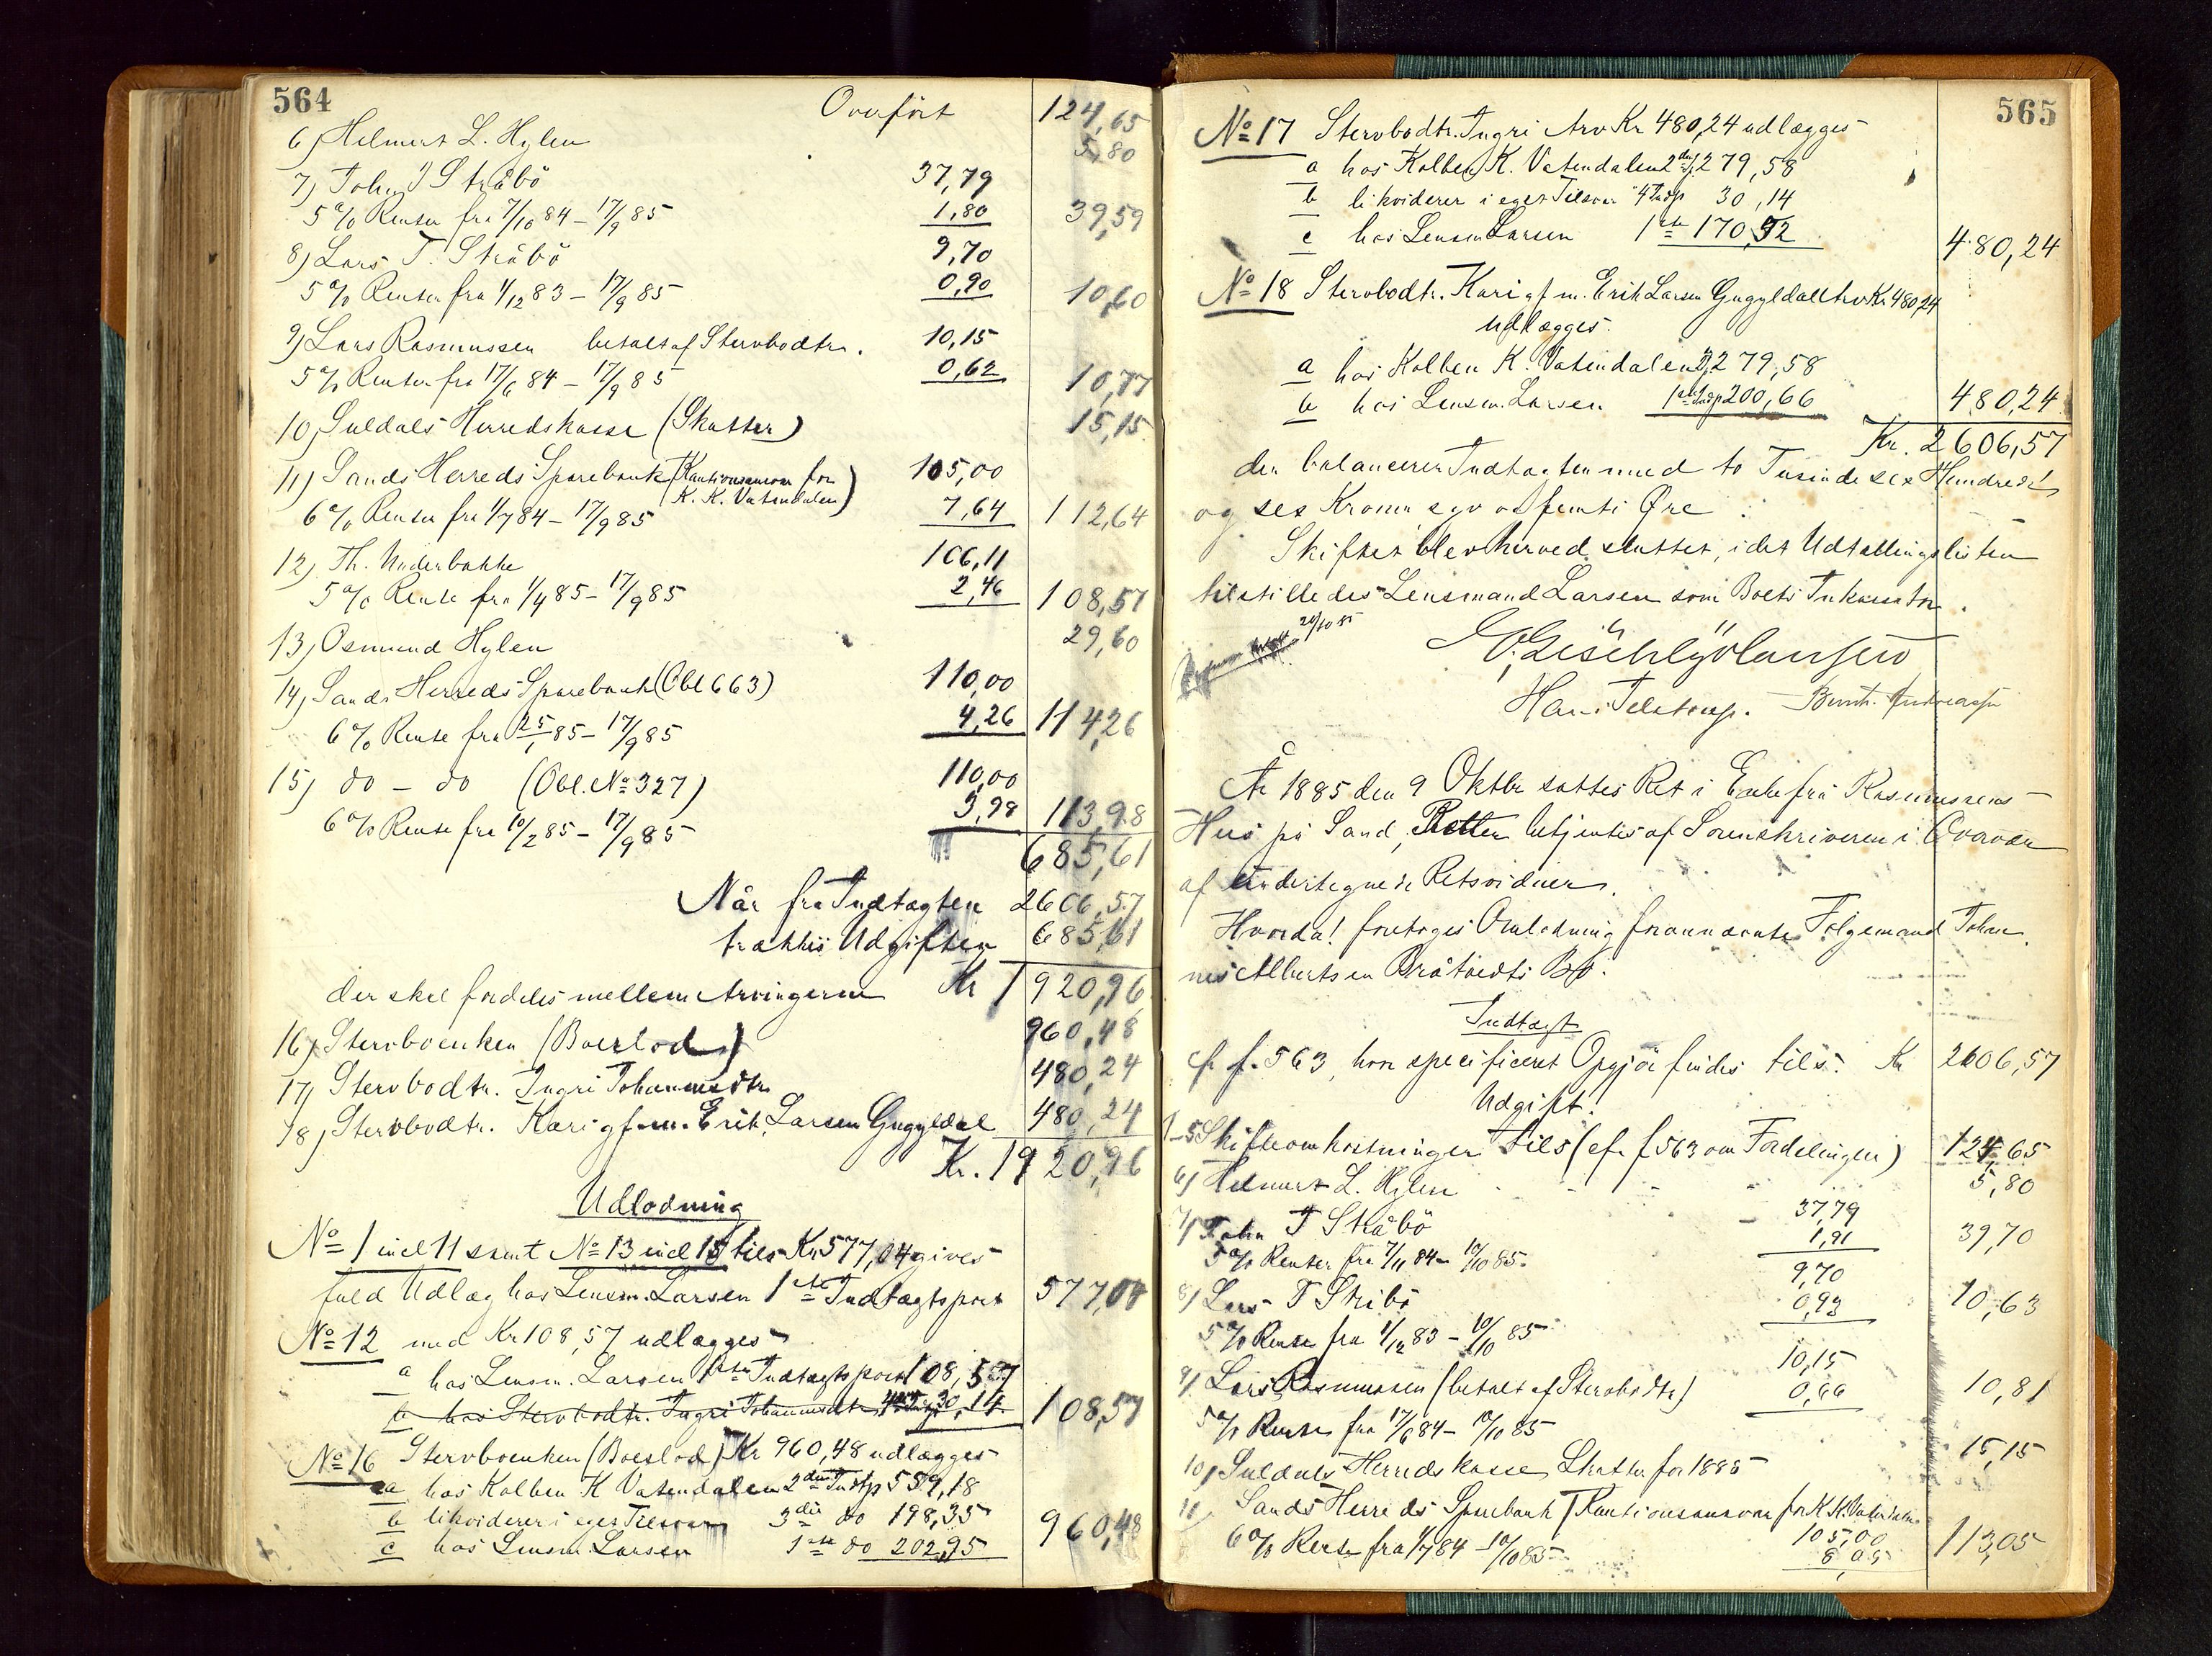 564
Overført 124,65
6) Helmert L. Hylen 5,80
7) John T Stråbö 37,79
5% Renter fra 7/10 84 – 17/9 85 1,80 39,59
8) Lars T. Stråbö 9,70
5% Renter fra 1/12 83 – 17/9 85 0,90 10,60
9) Lars Rasmussen betalt af Stervbodtr. 10,15
5% Renter fra 17/6 84 – 17/9 85 0,62 10,77
10) Suldals Herredskasse (Skatter) 15,15
11) Sands Herreds Sparebank (Kautionsansvar for K. K. Vatendalen) 105,00
6% Renter fra 1/7 84 – 17/9 85 7,64 112,64
12) Th. Underbakke 106,11
5% Rente fra 1/4 85 – 17/9 85 2,46 108,57
13) Osmund Hylen 29,60
14) Sands Herreds Sparebank (Obl 663) 110,00
6% Rente fra 25/1 85 – 17/9 85 4,26 114,26
15) do – do (Obl. No 327) 110,00
6% Rente fra 10/2 85 – 17/9 85 3,98 113,98
685,61
Når fra Indtægten 2606,57
trækkes Udgiften 685,61
der skal fordeles mellem Arvingerne Kr 1920,96
16) Stervboenken (Boeslod) 960,48
17) Stervbodtr. Ingri Johannesdtr 480,24
18) Stervbodtr. Kari gf. m. Erik Larsen Guggldal 480,24
Kr. 1920,96
Udlodning
No 1 incl 11 samt No 13 incl 15 tils Kr 577,04 gives
fuld Udlæg hos Lensm. Larsen 1ste Indtægtspost 577,04
No 12 med Kr 108,57 udlægges
a hos Lensm. Larsen 1ste Indtægtspost 108,57
b hos Stervbodtr. Ingri Johannesdtr 30,14 108,57
No 16 Stervboenken (Boeslod) Kr 960,48 udlægges
a hos Kolben K Vatendalen 2den Indtp 559,18
b likviderer i eget Tilsvar 3die do 198,35
c hos Lensm. Larsen 1ste do 202,95 960,48
565
No 17 Stervbodtr. Ingri Arv Kr 480,24 udlægges
a hos Kolben K. Vatendalen 2den 279,58
b likviderer i eget Tilsvar 4 Indtp 30,14
c hos Lensm Larsen 1ste 170,52 480,24
No 18 Stervbodtr. Kari gf m. Erik Larsen Guggldal Arv Kr 480,24
udlægges
a hos Kolben K. Vatendalen 2 279,58
b hos Lensm. Larsen 1ste Indtp 200,66 480,24
Kr. 2606,57
der balancerer Indtægten med to Tusinde sex Hundrede
og sex Kroner syv og femti Øre.
Skiftet blev herved sluttet, idet Udtællingslisten
tilstilledes Lensmand Larsen som Boets Inkassator.
20/10 85
Hans Telstrup. Bernt. Andreassen
År 1885 den 9 Oktbr sattes Ret i Enkefru Rasmussens
Hus på Sand, Retten betjentes af Sorenskriveren i Overvær
af undertegnede Retsvidner.
Hvorda! foretoges Omlodning forannævnte Følgemand Johan-
nes Albertsen Bråtveits Bo.
Indtægt
cfr f. 563, hvor specificeret Opgjør findes tils. Kr 2606,57
Udgift!
1–5 Skifteomkostninger tils (cfr f 563 om Fordelingen) 124,65
6) Helmert L. Hylen 5,80
7) John T Stråbö 37,79
5% Renter fra 7/11 84 – 10/10 85. 1,91 39,70
8) Lars T Stråbö 9,70
5% Renter fra 1/12 83 – 10/10 85 0,93 10,63
9) Lars Rasmussen (betalt af Stervbodtr) 10,15
5% Renter fra 17/6 84 – 10/10 85 0,66 10,81
10) Suldals Herredskasse, Skatter for 1885 15,15
11) Sands Herreds Sparebank (Kautionsansvar for K K. Vatendalen 105,00
6% Renter fra 1/7 84 – 10/10 85 8,05 113,05